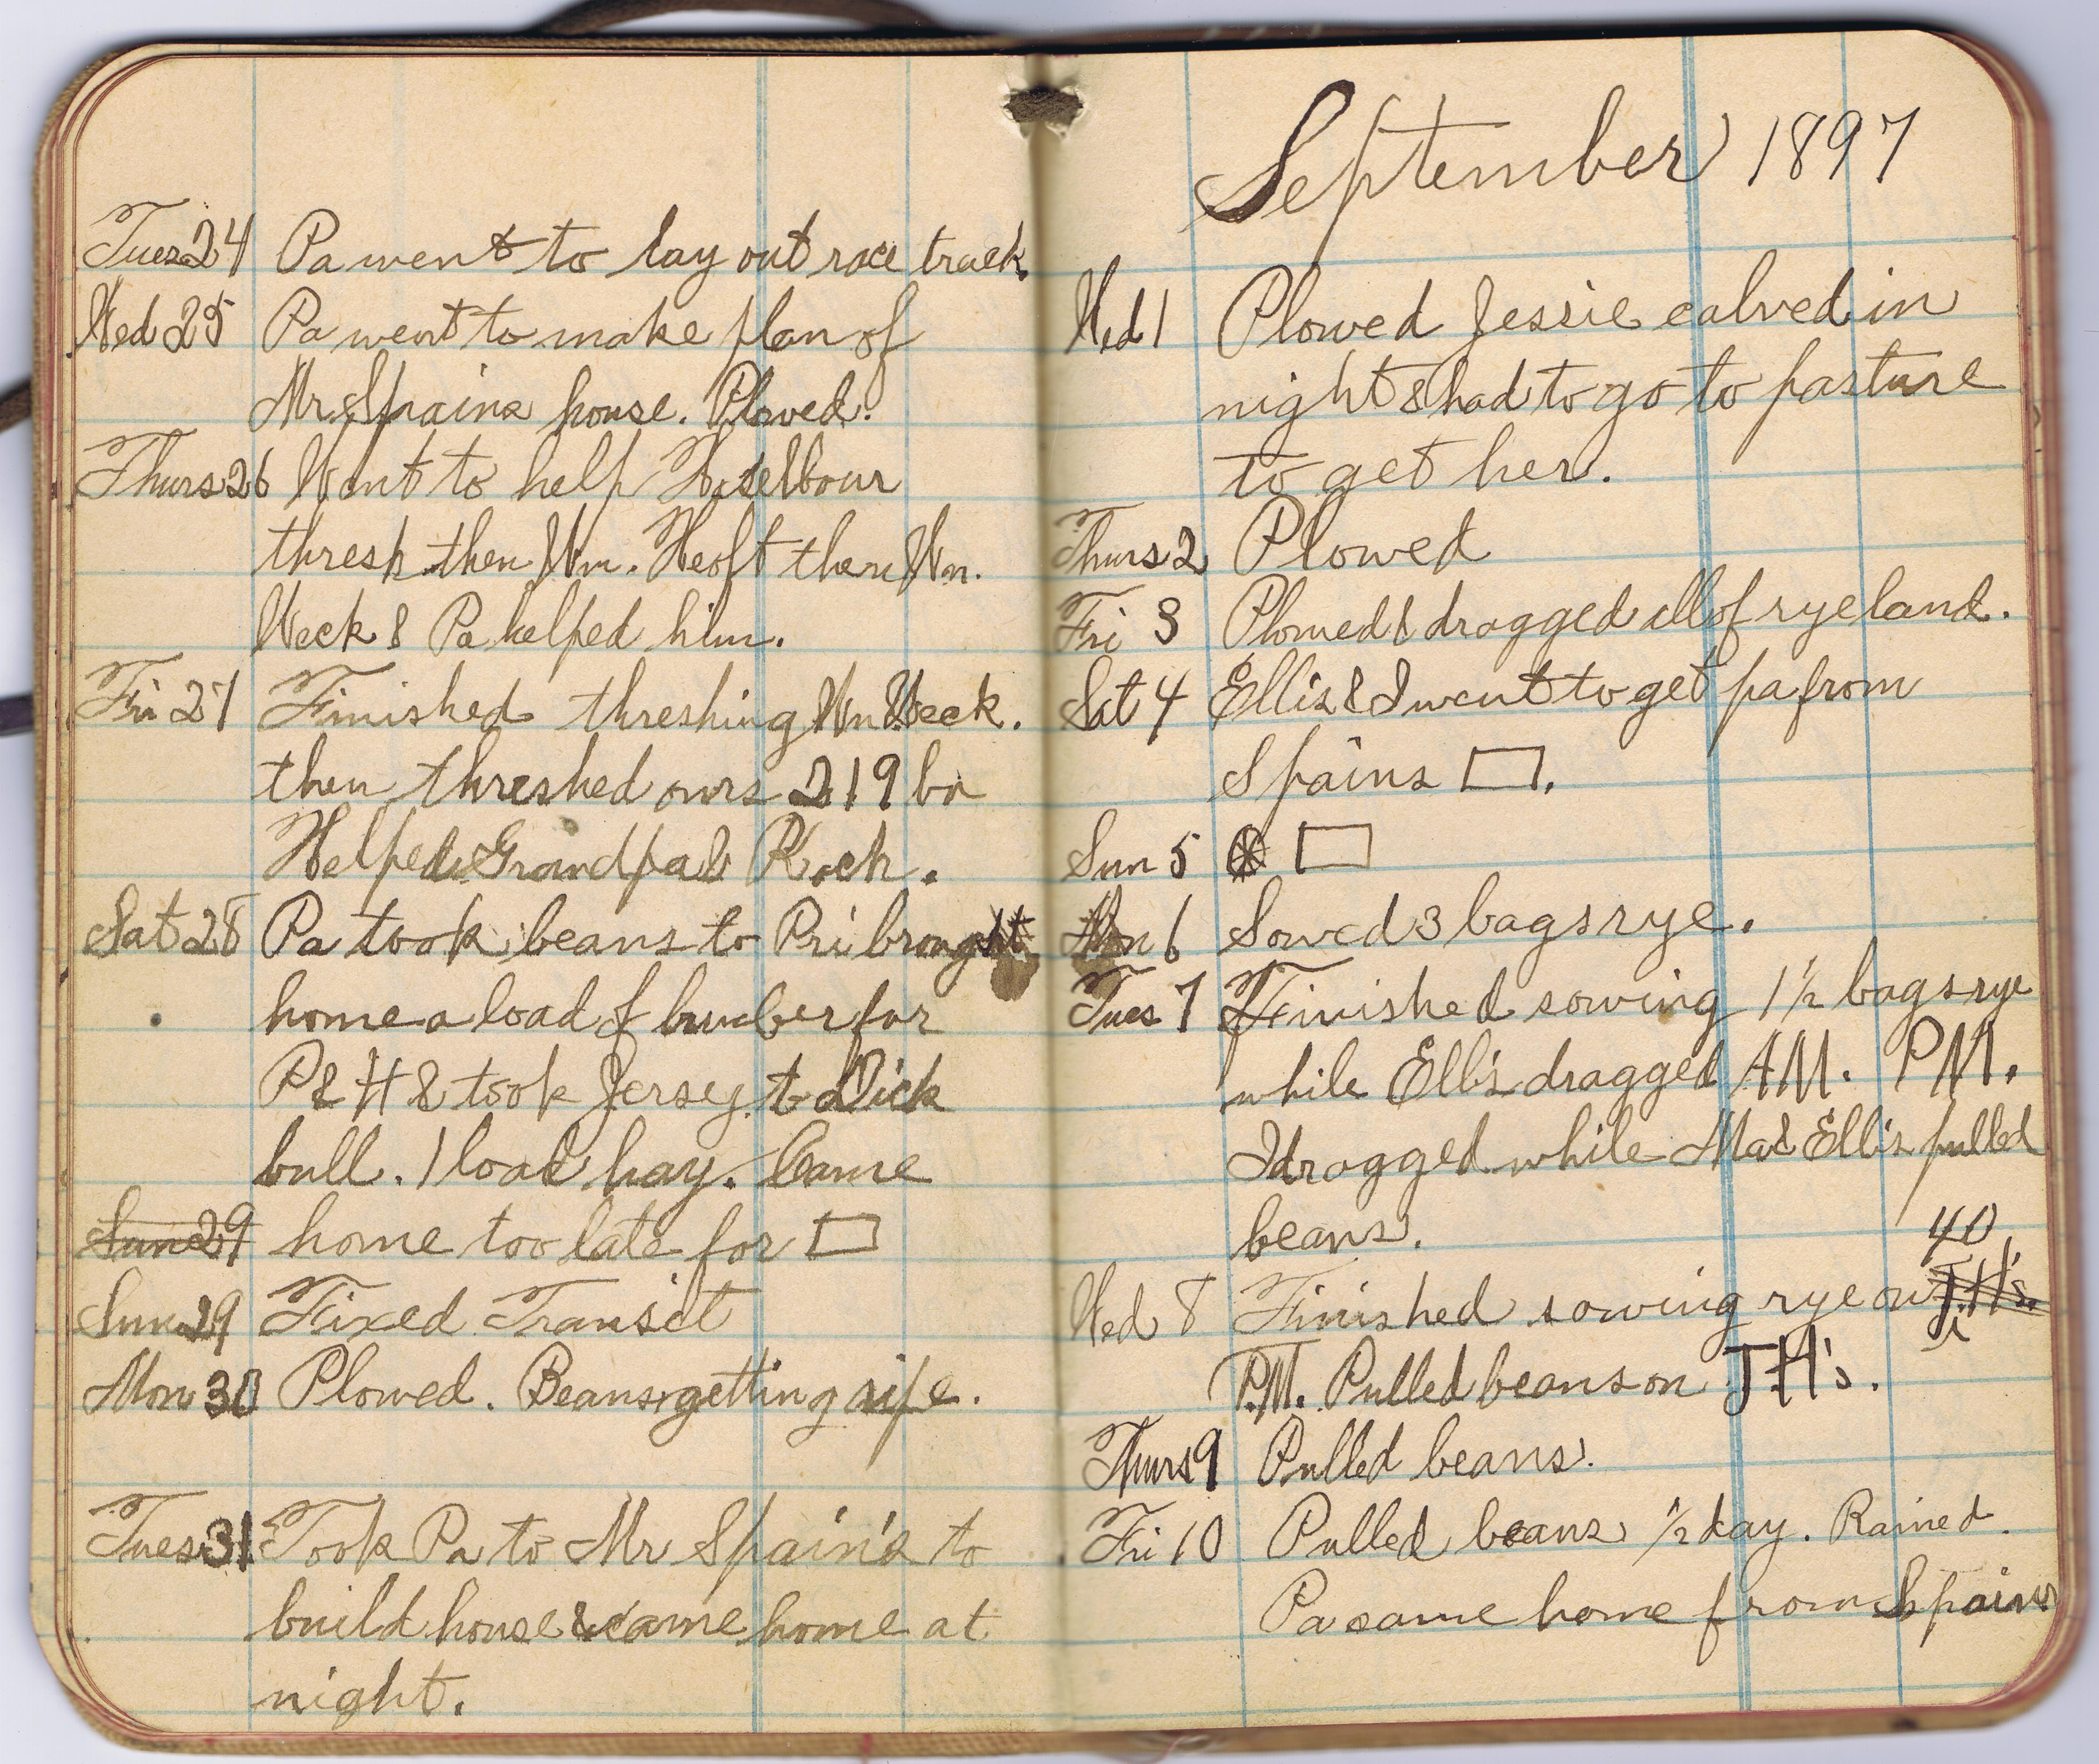 Tues 24 Pa went to lay out race track.
Wed 25 Pa went to make plan of
Mr. Spains house. Plowed.
Thurs 26 Went to help
thresh then Wm. Heoft then Wm.
Weck & Pa helped him.
Fri 27 Finished threshing Wm Weck.
then threshed ours 219 bu
Helped Grandpa & Koch.
Sat 28 Pa took beans to Pri brought
home a load of lumber for
P & H & took Jersey to Dick
bull. 1 load hay. Came
Sun 29 home too late for □
Sun 29 Fixed Transit
Mon 30 Plowed. Beans getting ripe.
Tues 31 Took Pa to Mr Spain's to
build house & came home at
night.
September 1897
Wed 1 Plowed Jessie calved in
night & had to go to pasture
to get her.
Thurs 2 Plowed
Fri 3 Plowed & dragged all of rye land.
Sat 4 Ellis & I went to get pa from
Spains □.
Sun 5 □
Mon 6 Sowed 3 bags rye.
Tues 7 Finished sowing 1 1/2 bags rye
while Ellis dragged AM. PM.
I dragged while Ma & Ellis pulled
beans.
40
Wed 8 Finished sowing rye on J.H's.
P.M. Pulled beans on J.H's.
Thurs 9 Pulled beans.
Fri 10 Pulled beans 1/2 day. Rained.
Pa came home from Spains